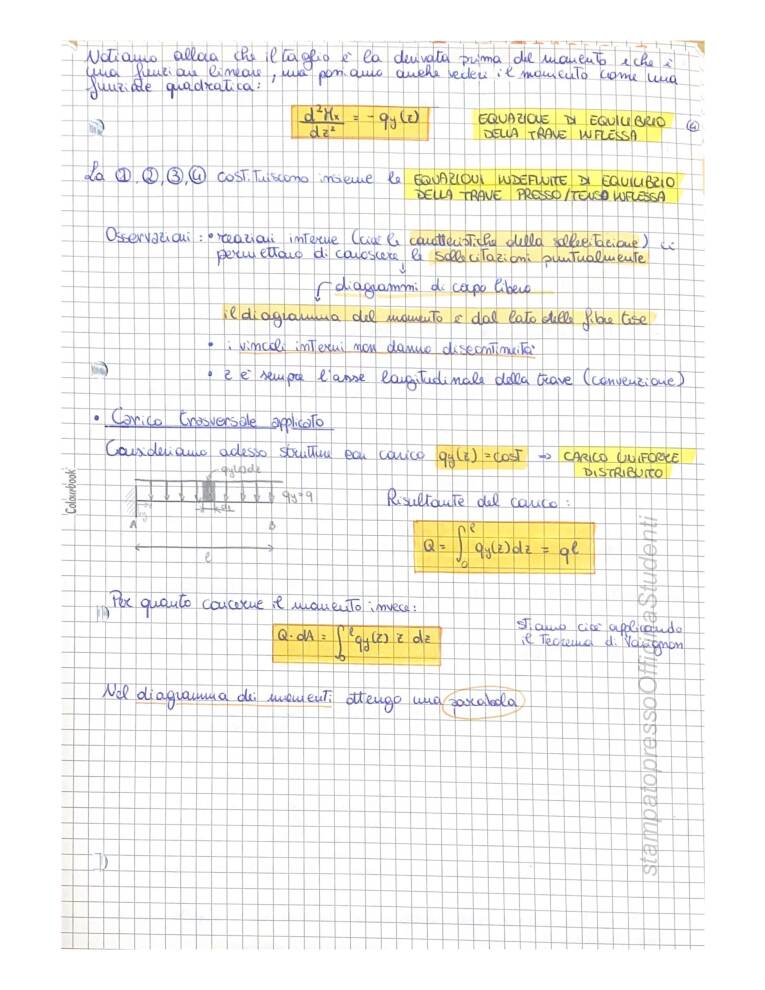 Notiamo allora che il taglio è la derivata prima del momento e che è
una funzione lineare, ma possiamo anche vedere il momento come una
funzione quadratica:
d²Mx/dz² = - qy(z)
EQUAZIONE DI EQUILIBRIO
DELLA TRAVE INFLESSA
④
La ①, ②, ③, ④ costituiscono insieme le EQUAZIONI INDEFINITE DI EQUILIBRIO
DELLA TRAVE PRESSO/TENSO INFLESSA
Osservazioni: • reazioni interne (cioè le caratteristiche della sollecitazione) ci
permettono di conoscere le sollecitazioni puntualmente
diagrammi di corpo libero
il diagramma del momento è dal lato delle fibre tese
• i vincoli interni non danno discontinuità
• z è sempre l'asse longitudinale della trave (convenzione)
• Carico trasversale applicato
Consideriamo adesso strutture con carico qy(z) = cost ⇒ CARICO UNIFORME
DISTRIBUITO
qy(z)dz
qy=q
dz
A
B
l
Risultante del carico:
Q = ∫₀ˡ qy(z) dz = ql
Per quanto concerne il momento invece:
Q · dA = ∫₀ˡ qy(z) z dz
stiamo cioè applicando
il Teorema di Varignon
Nel diagramma dei momenti ottengo una parabola
Colourbook
stampatopressoOfficinaStudenti